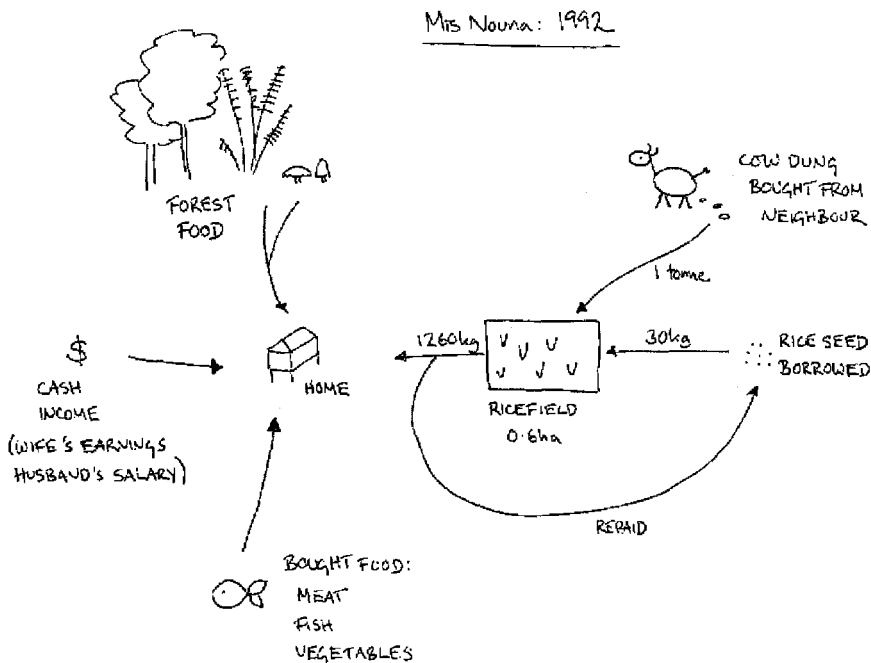 Mis Nouna: 1992
FOREST
FOOD
COW DUNG
BOUGHT FROM
NEIGHBOUR
1 tonne
$
CASH
INCOME
(WIFE'S EARNINGS
HUSBAND'S SALARY)
HOME
1260kg
RICEFIELD
0.6ha
30kg
RICE SEED
BORROWED
REPAID
BOUGHT FOOD:
MEAT
FISH
VEGETABLES